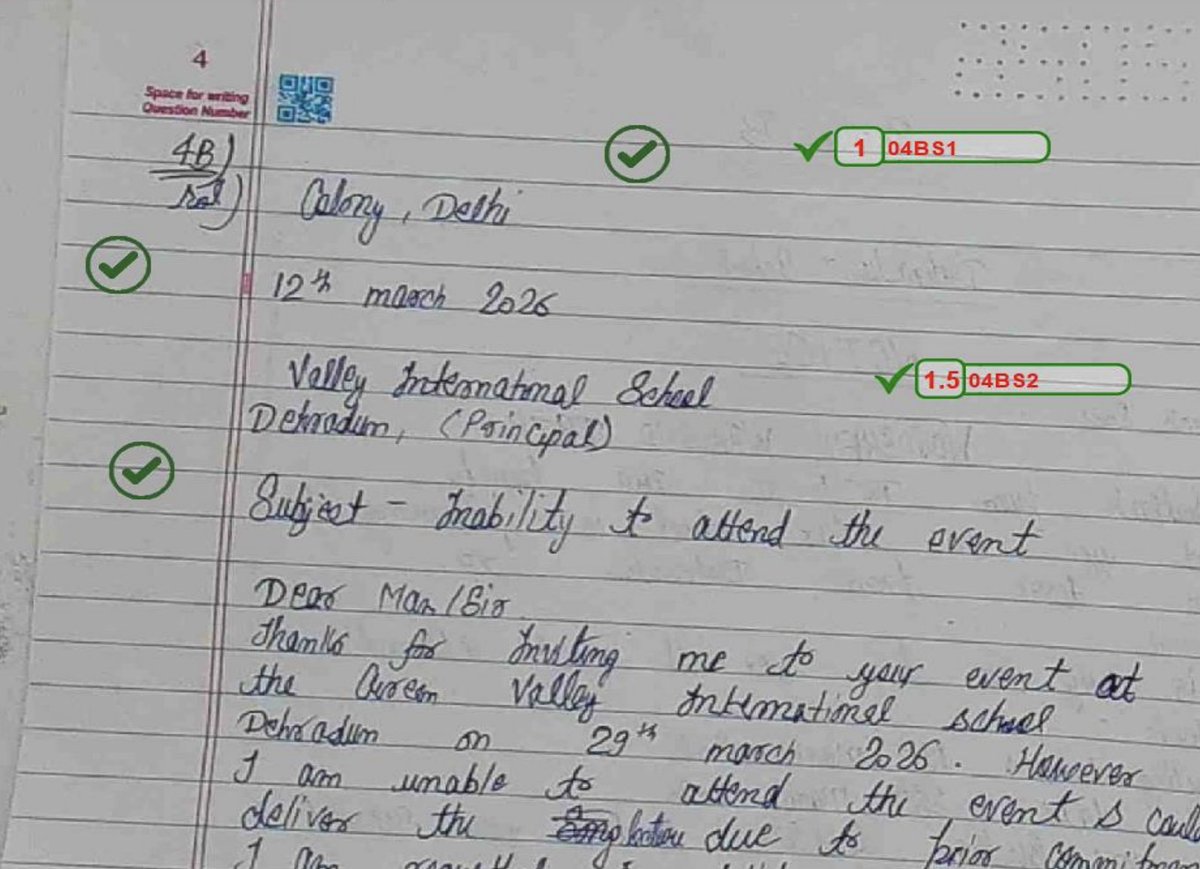 4
Space for writing
Question Number
4B)
1 04BS1
Colony, Delhi
12th march 2026
Valley International School
1.5 04BS2
Dehradum, (Principal)
Subject - Inability to attend the event
Dear Mam/Sir
thanks for Inviting me to your event at
the Valley International school
Dehradum on 29th march 2026. However
I am unable to attend the event
deliver the due to prior
I am